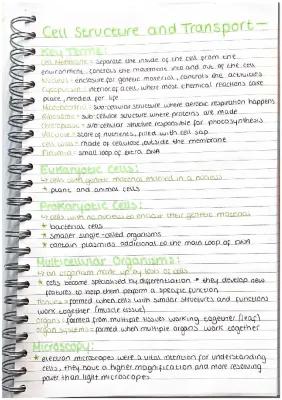 Cell Structure and Transport -
Key Terms:
Cell Membrane = separate the inside of the cell from the
environment, controls the movement into and out of the cell
Nucleus = enclosure for genetic material, controls the activities
Cytoplasm = interior of a cell, where most chemical reactions take
place, needed for life
Mitochondria = sub-cellular structure where aerobic respiration happens
Ribosome = sub-cellular structure where proteins are made
Chloroplast = sub-cellular structure responsible for photosynthesis
Vacuole = store of nutrients, filled with cell sap
Cell wall = made of cellulose outside the membrane
Plasmid = small loop of extra DNA
Eukaryotic Cells:
cells with genetic material in a nucleus
* plant and animal cells
Prokaryotic Cells:
cells with no nucleus to enclose their genetic material
* bacterial cells
* smaller single-celled organisms
* contain plasmids additional to the main loop of DNA
Multicellular Organisms:
an organism made up by lots of cells
* cells become specialised by differentiation * they develop new
features to help them perform a specific function
Tissues = formed when cells with similar structures and functions
work together (muscle tissue)
organs = formed from multiple tissues working together (leaf)
organ systems = formed when multiple organs work together
Microscopy:
* electron microscopes were a vital invention for understanding
cells, they have a higher magnification and more resolving
power than light microscopes